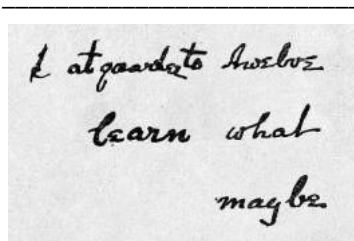 at quarter to twelve
learn what
may be